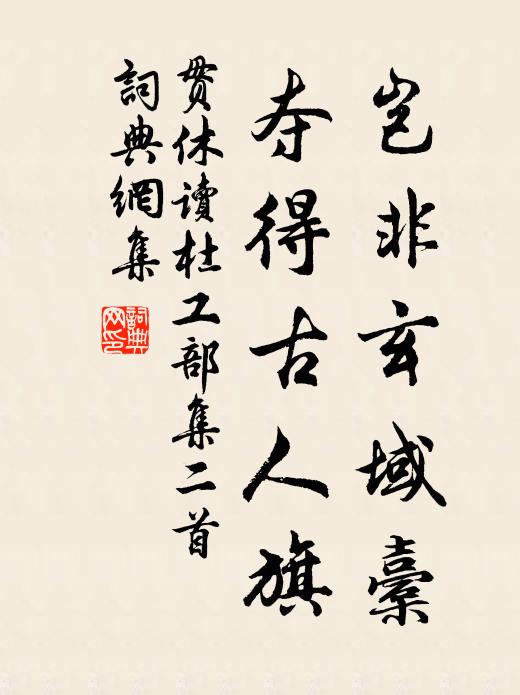 岂非玄域橐
夺得古人旗
贯休读杜工部集二首
词典網集
詞典網印